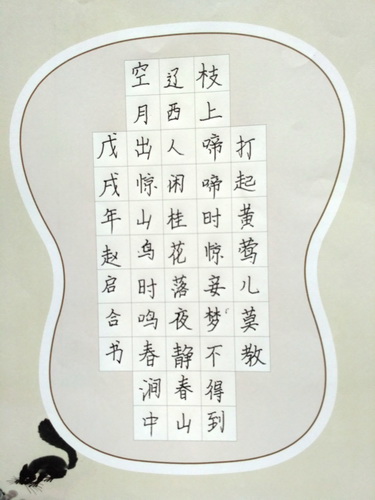 打起黄莺儿莫教
枝上啼啼时惊妾梦不得到
辽西人闲桂花落夜静春山
空月出惊山鸟时鸣春涧中
戊戌年赵启合书